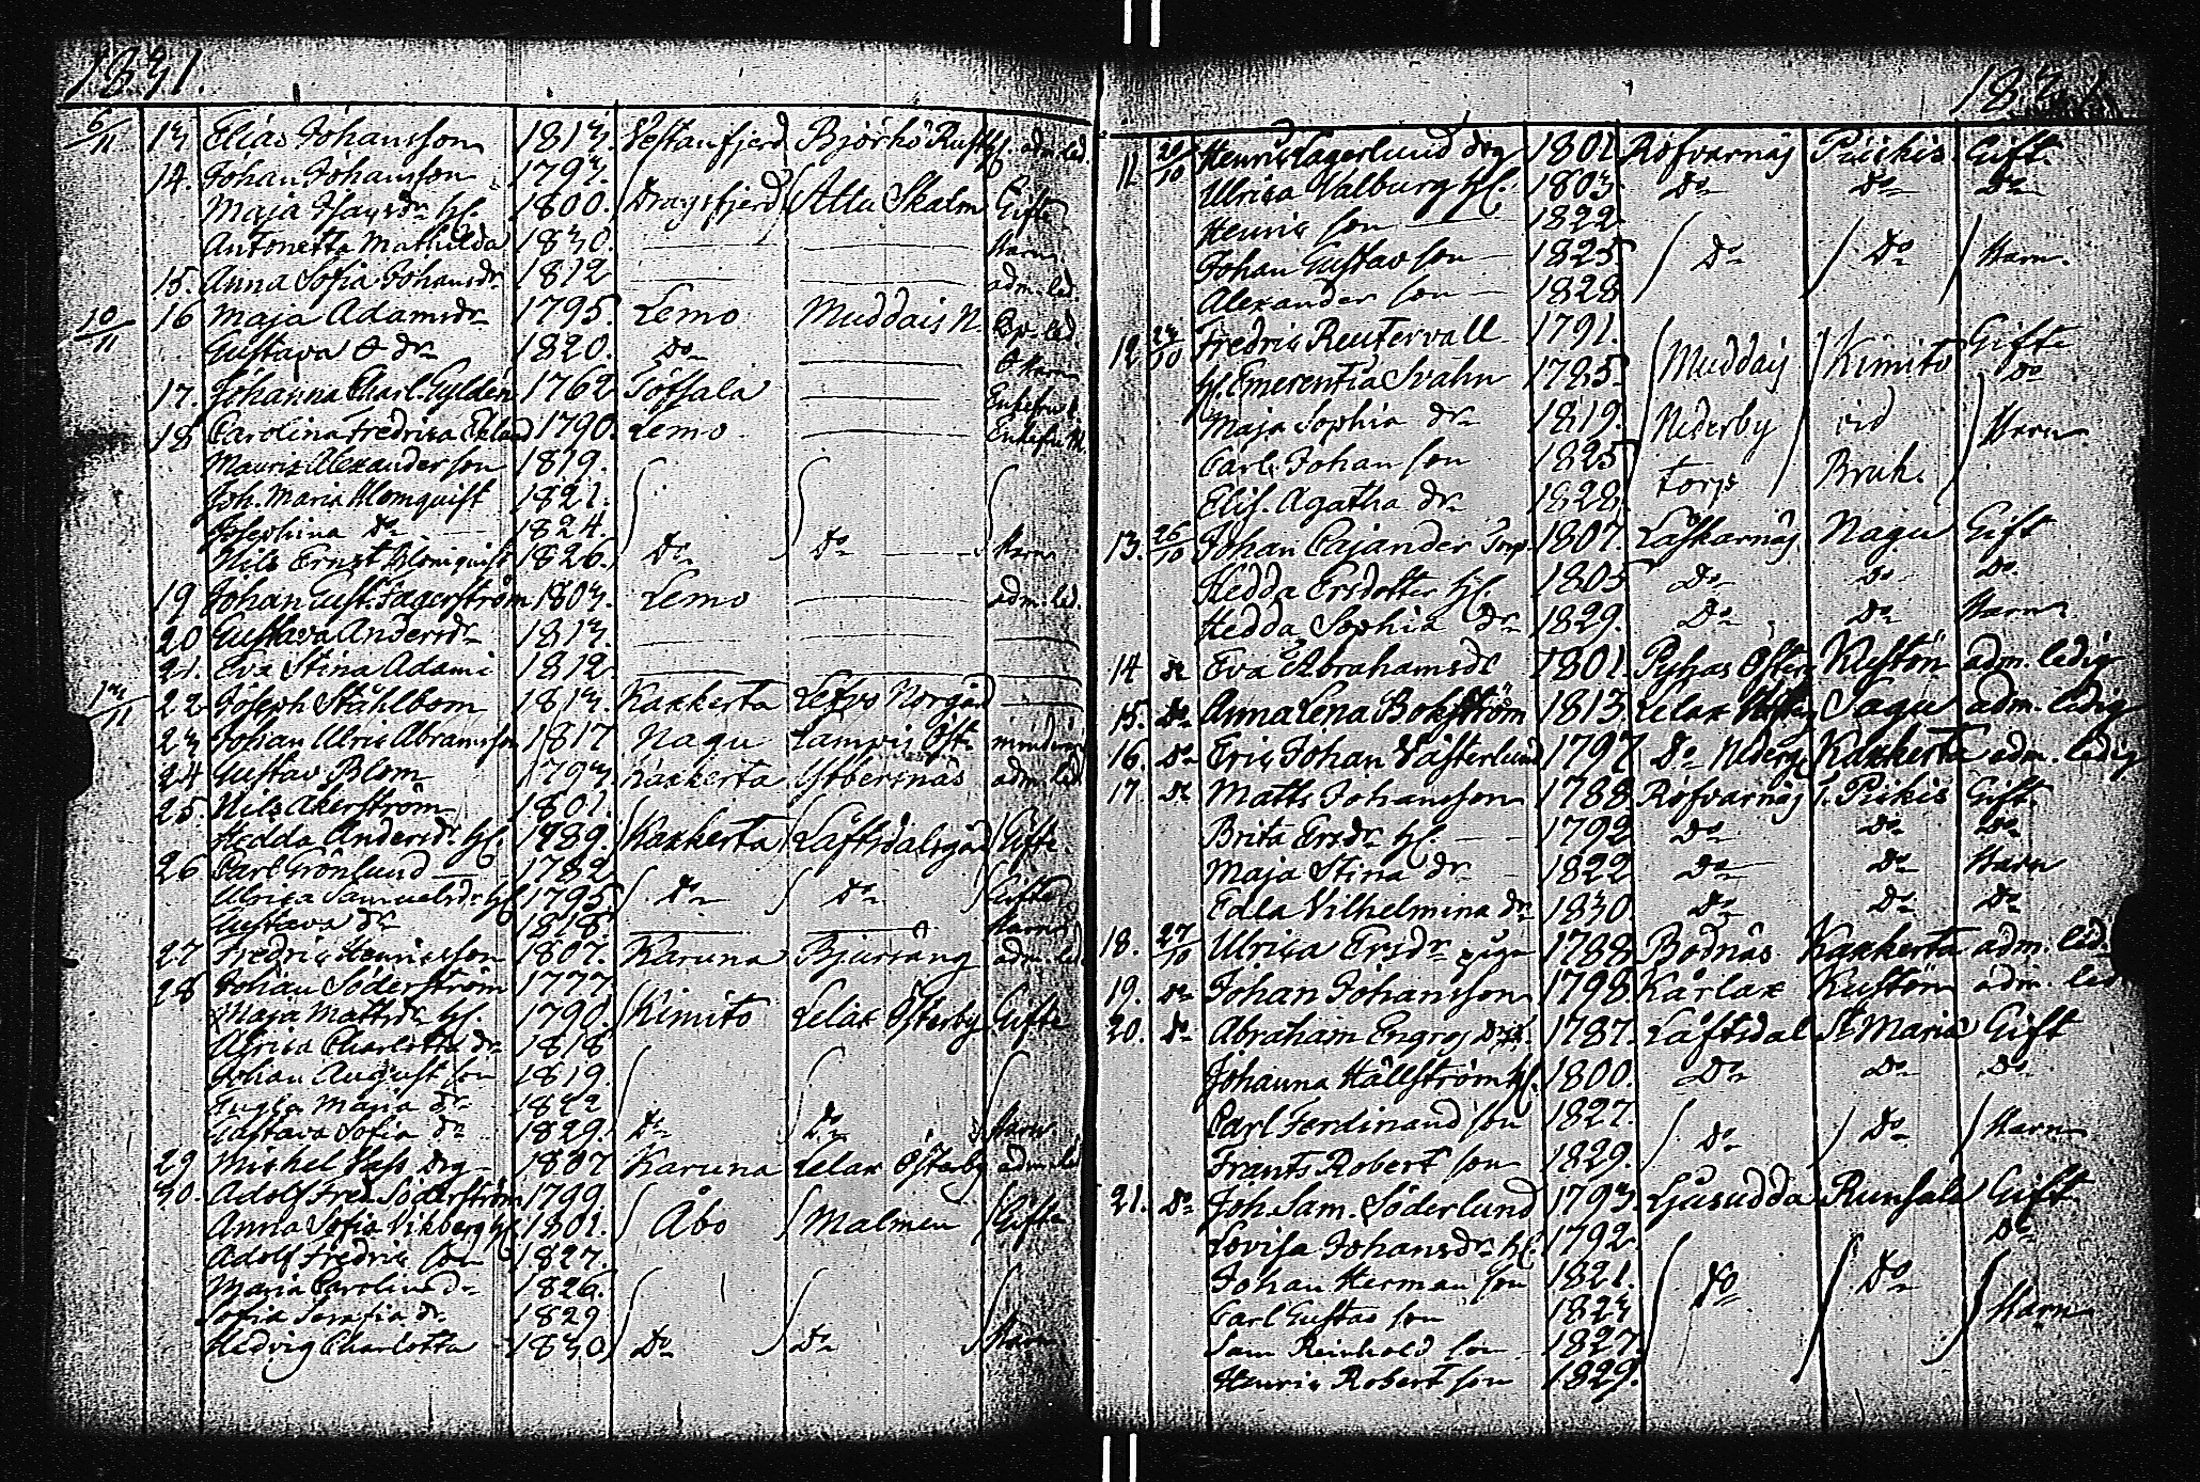 1831.
6/11 13 Elias Johansson 1813. Vestanfjerd Björkö Rusth. adm. led.
14. Johan Johansson 1793.
Maja Isaqsdr h. 1800. Dragsfjerd Attu Skalm Gifte
Antonetta Mathilda 1830. Barn.
15. Anna Sofia Johansdr 1812 adm. led.
10/11 16 Maja Adamsdr 1795. Lemo Muddais N. led.
Gustava dr 1820. Do
17. Johanna Charl. Gyldén 1762 Töfsala Enkefru
18 Carolina Fredrica Eklund 1790. Lemo Enkefru
Mauritz Alexander son 1819.
Joh. Maria Blomquist 1821.
Josephina dr 1824.
Nils Ernst Blomquist 1826. Do Do Barn
19 Johan Gust. Fagerström 1803. Lemo adm. led.
20 Gustava Andersdr 1813.
21. Eva Stina Adami 1812
13/11 22 Joseph Ståhlbom 1813. Kakskerta Lexvo Norgård
23 Johan Ulric Abramsson 1817 Nagu Lampis Öst.
24 Gustav Blom 1793 Kakskerta Ytbertnäs adm. led
25. Nils Åkerström 1801.
Hedda Andersdr. h. 1789. Kakskerta Låftsdalsgård Gifte.
26 Carl Grönlund 1782
Ulrica Samuelsdr h. 1795 Do Do Gifte
Gustava dr 1818. Barn
27 Fredric Henricsson 1807. Karuna Bjursäng adm. led
28 Johan Söderström 1777
Maja Mattsdr h. 1790 Kimito Lelax Österby Gifte
Ulrica Charlotta dr 1818
Johan August son 1819.
Maria dr 1822
Gustava Sofia dr 1829. Do Do Barn
29 Michel Hass drg 1807 Karuna Lelax Österby adm. led
30. Adolf Fred. Söderström 1799
Anna Sofia Vikberg h. 1801. Åbo Malmen Gifte
Adolf Fredric son 1827.
Maria Carolina dr 1826.
Sofia Serafia dr 1829
Hedvig Charlotta 1830 Do Do Barn
1831.
11. 20/10 Henric Lagerlund drg 1801 Röfvarnäs Piickis Gift.
Ulrica Valburg h. 1803. Do Do Do
Henric son 1822
Johan Gustav son 1825 Do Do Barn.
Alexander son 1828
12 23/10 Fredric Reutervall 1791. Gifte
h. Emerentia Svahn 1785 Muddais Kimito Do
Maja Sophia dr 1819. Nederby vid Barn.
Carl Johan son 1825 torp Bruk.
Elis. Agatha dr 1828.
13. 26/10 Johan Cajander Torp. 1807. Laskarnäs Nagu Gift
Hedda Ersdotter h. 1805 Do Do Do
Hedda Sophia dr 1829. Do Do Barn
14 do Eva Abrahamsdr 1801. Pyhjas Öster Kustön adm. ledig
15. Do Anna Lena Bokström 1813. Lelax Sagu adm. ledig
16. Do Eric Johan Västerlund 1797 Do Nederg. Kakskerta adm. ledig
17. do Matts Johansson 1788 Röfvarnäs T. Pickis Gift.
Brita Ersdr h. 1792 Do Do Do
Maja Stina dr 1822 Do Do Barn
Edla Vilhelmina dr 1830 Do Do Do
18. 27/10 Ulrica Ersdr piga 1788 Bodnäs Kakskerta adm. led.
19. do Johan Johansson 1798 Kårlax Kustön adm. led
20. do Abraham Engros 1787. Låftsdal St. Maria Gift
Johanna Hällström h. 1800. Do Do Do
Carl Ferdinand son 1827. Do Do Barn
Frants Robert son 1829.
21. Do Joh. Sam. Söderlund 1793. Ljusudda Runsala Gift.
Lovisa Johansdr h. 1792. Do
Johan Herman son 1821. Do Do
Carl Gustav son 1823 Barn
Sam Reinhold son 1827.
Henric Robert son 1829.